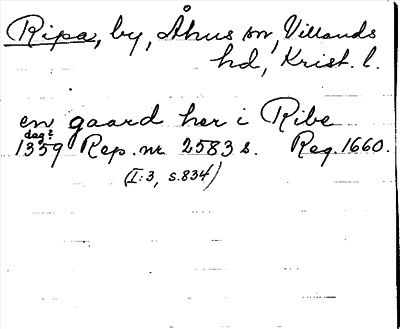 Ripa, by, Åhus sn, Villands
hd, Krist. l.
en gaard her i Ribe
dag?
1359 Rep. nr. 2583 s. Reg. 1660.
(I:3, s.834)